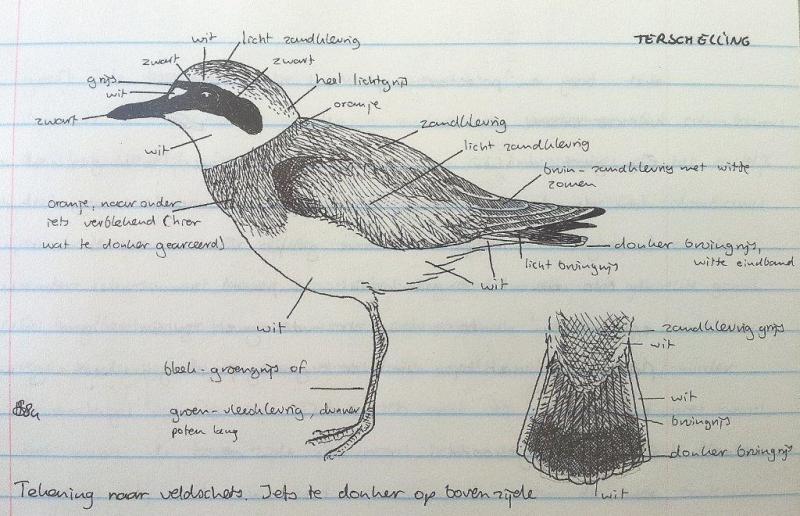 TERSCHELLING
wit
licht zandkleurig
zwart
zwart
grijs
wit
heel lichtgrijs
oranje
zwart
zandkleurig
wit
licht zandkleurig
bruin-zandkleurig met witte
zomen
oranje, naar onder
iets verblekend (hier
wat te donker gearceerd)
donker bruingrijs,
witte eindband
licht bruingrijs
wit
wit
zandkleurig grijs
wit
bleek-groengrijs of
groen-vleeskleurig, dunne
poten lang
wit
bruingrijs
donker bruingrijs
wit
Tekening naar veldschets. Iets te donker op bovenzijde